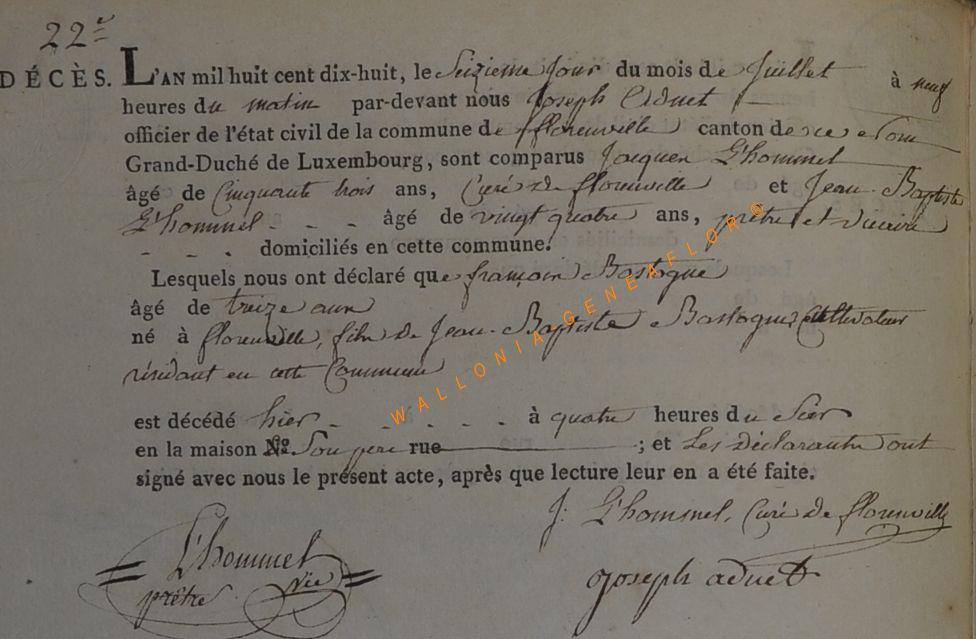 22e
DÉCÈS. L'AN mil huit cent dix-huit, le Seizieme Jour du mois de Juillet à neuf
heures du matin par-devant nous Joseph Adnet
officier de l'état civil de la commune de florenville canton de ce nom
Grand-Duché de Luxembourg, sont comparus Jacques L'hommel
âgé de Cinquante trois ans, Curé de florenville et Jean-Baptiste
L'hommel - - - âgé de vingt quatre ans, prêtre et vicaire
- - - domiciliés en cette commune.
Lesquels nous ont déclaré que françois Bastogne
âgé de treize ans
né à florenville, fils de Jean-Baptiste Bastogne Cultivateur
résidant en cette Commune
est décédé hier - - - - - à quatre heures du Soir
en la maison No. Son pere rue ; et Les déclarants ont
signé avec nous le présent acte, après que lecture leur en a été faite.
J: L'hommel, Curé de florenville
L'hommel
prêtre vic
joseph adnet
WALLONIA GENEAFLOR ©